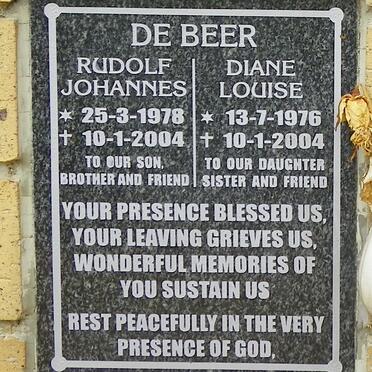 DE BEER
RUDOLF
JOHANNES
✶ 25-3-1978
✝ 10-1-2004
TO OUR SON,
BROTHER AND FRIEND
DIANE
LOUISE
✶ 13-7-1976
✝ 10-1-2004
TO OUR DAUGHTER
SISTER AND FRIEND
YOUR PRESENCE BLESSED US,
YOUR LEAVING GRIEVES US,
WONDERFUL MEMORIES OF
YOU SUSTAIN US
REST PEACEFULLY IN THE VERY
PRESENCE OF GOD,